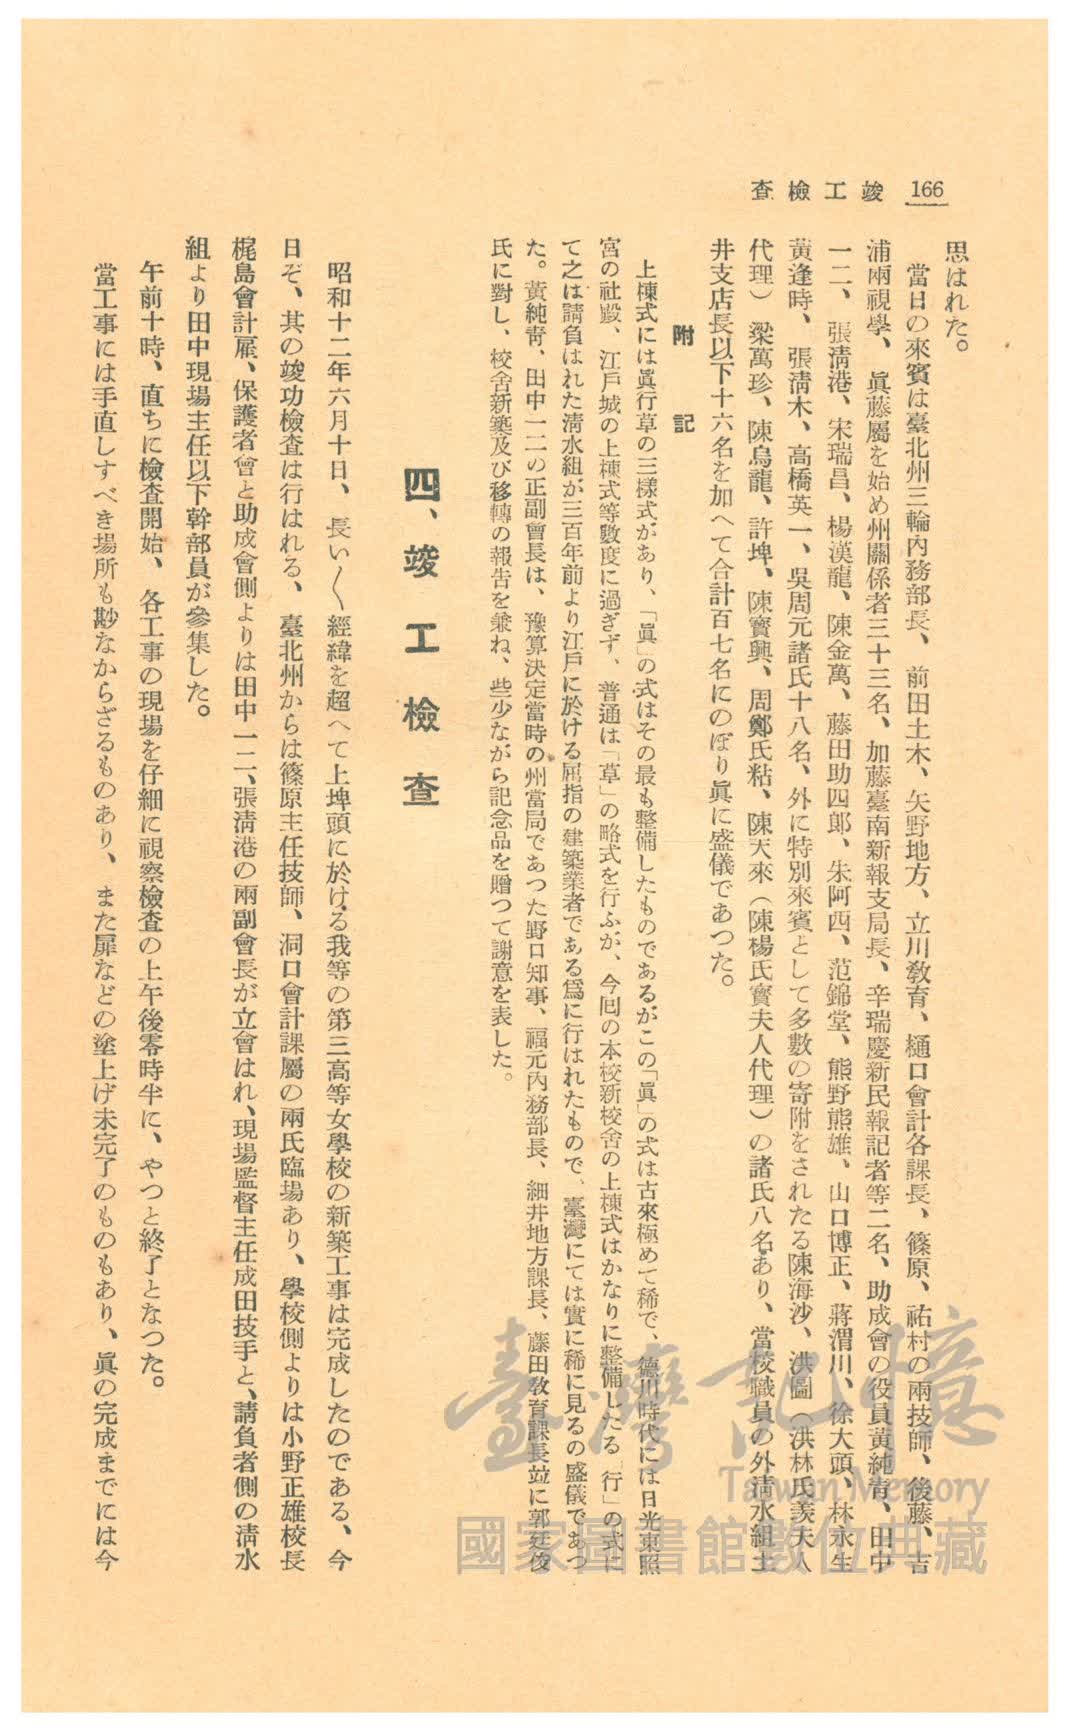 166
竣工檢查
思はれた。
當日の來賓は臺北州三輪內務部長、前田土木、矢野地方、立川敎育、樋口會計各課長、篠原、祐村の兩技師、後藤、吉
浦兩視學、眞藤屬を始め州關係者三十三名、加藤臺南新報支局長、辛瑞慶新民報記者等二名、助成會の役員黃純靑、田中
一二、張淸港、宋瑞昌、楊漢龍、陳金萬、藤田助四郞、朱阿西、范錦堂、熊野熊雄、山口博正、蔣渭川、徐大頭、林永生
黃逢時、張淸木、高橋英一、吳周元諸氏十八名、外に特別來賓として多數の寄附をされたる陳海沙、洪圖（洪林氏羨夫人
代理）梁萬珍、陳烏龍、許埤、陳寶興、周鄭氏粘、陳天來（陳楊氏寳夫人代理）の諸氏八名あり、當校職員の外淸水組土
井支店長以下十六名を加へて合計百七名にのぼり眞に盛儀であつた。
附記
上棟式には眞行草の三樣式があり、「眞」の式はその最も整備したものであるがこの「眞」の式は古來極めて稀で、德川時代には日光東照
宮の社殿、江戶城の上棟式等數度に過ぎず、普通は「草」の略式を行ふが、今囘の本校新校舍の上棟式はかなりに整備したる「行」の式に
て之は請負はれた淸水組が三百年前より江戶に於ける屈指の建築業者である爲に行はれたもので、臺灣にては實に稀に見るの盛儀であつ
た。黃純靑、田中一二の正副會長は、豫算決定當時の州當局であつた野口知事、福元內務部長、細井地方課長、藤田敎育課長竝に郭廷俊
氏に對し、校舍新築及び移轉の報吿を兼ね、些少ながら記念品を贈つて謝意を表した。
四、竣工檢查
昭和十二年六月十日、長い〱經緯を超へて上埤頭に於ける我等の第三高等女學校の新築工事は完成したのである、今
日ぞ、其の竣功檢査は行はれる、臺北州からは篠原主任技師、洞口會計課屬の兩氏臨場あり、學校側よりは小野正雄校長
梶島會計雇、保護者會と助成會側よりは田中一二、張淸港の兩副會長が立會はれ、現場監督主任成田技手と、請負者側の淸水
組より田中現場主任以下幹部員が參集した。
午前十時、直ちに檢査開始、各工事の現場を仔細に視察檢査の上午後零時半に、やつと終了となつた。
當工事には手直しすべき場所も尠なからざるものあり、また扉などの塗上げ未完了のものもあり、眞の完成までには今
臺灣記憶
Taiwan Memory
國家圖書館數位典藏